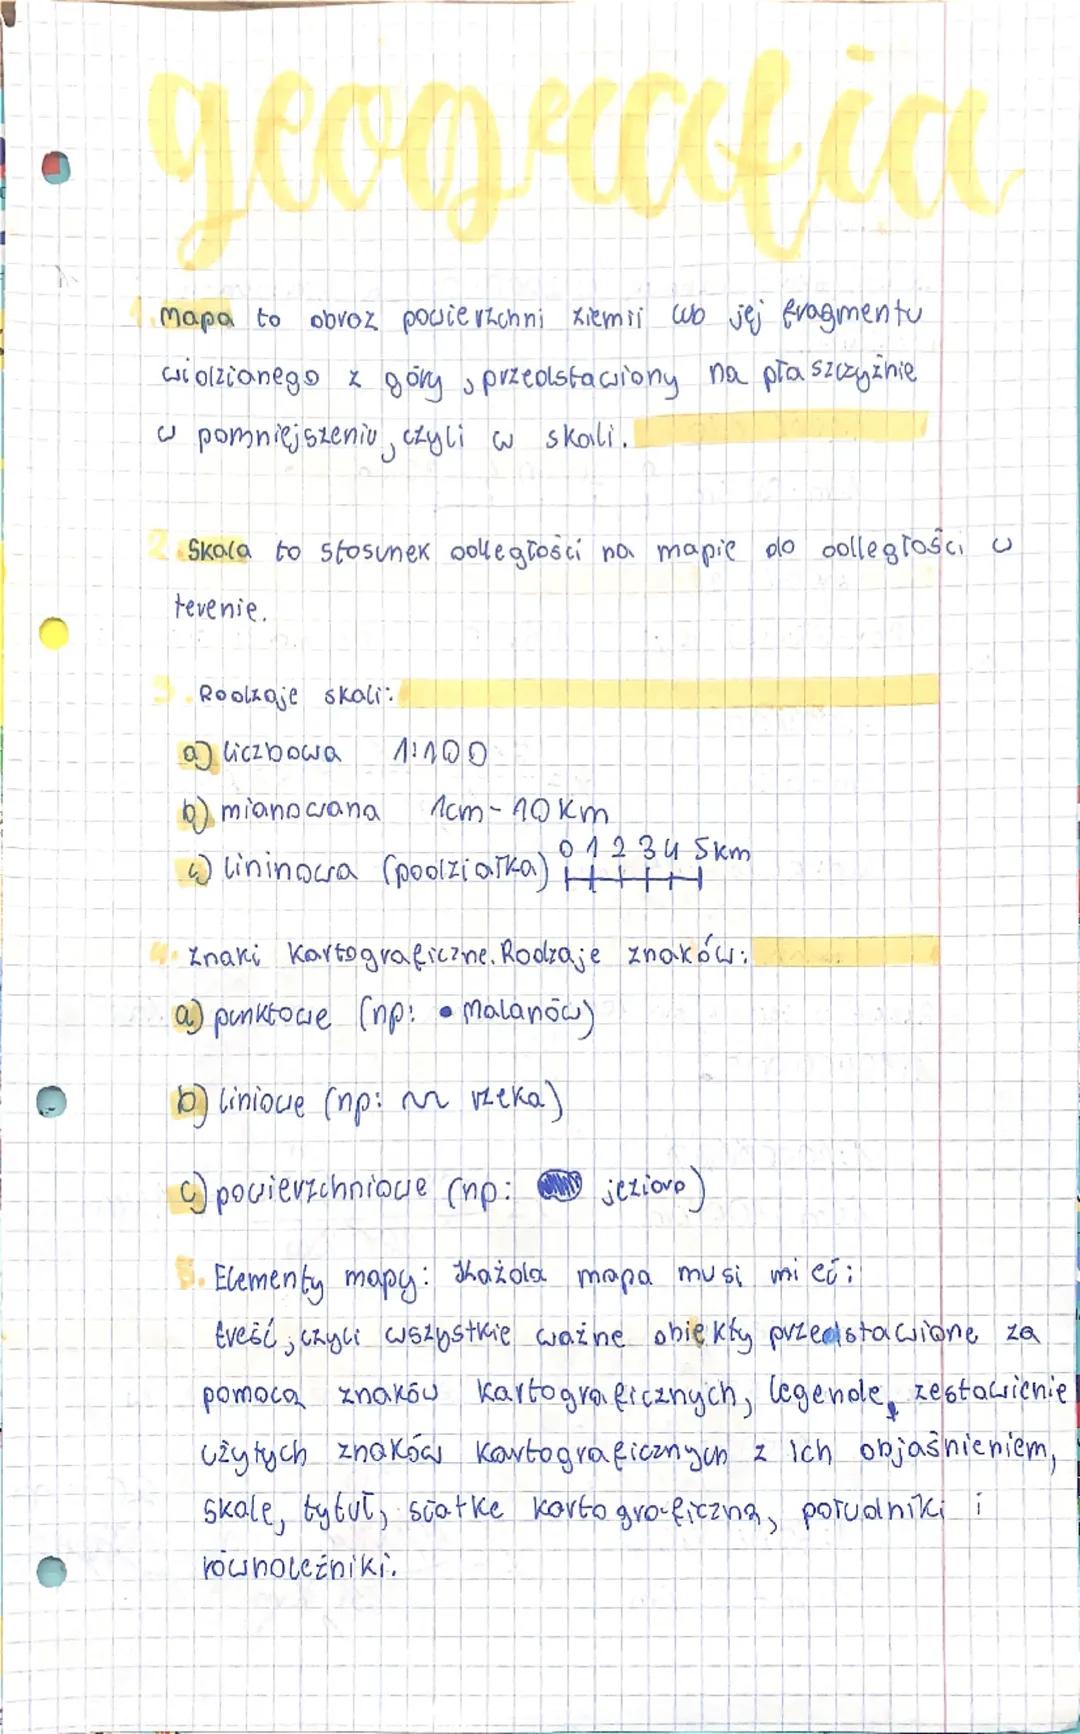 geografia
1. Mapa to obraz powierzchni ziemii lub jej fragmentu
widzianego z góry, przedstawiony na płaszczyźnie
w pomniejszeniu, czyli w skali.
2. Skala to stosunek odległości na mapie do odległości w
terenie.
3. Rodzaje skali:
a) liczbowa 1:100
b) mianowana 1cm - 10 km
c) lininowa (podziałka) 0 1 2 3 4 5km
4. Znaki kartograficzne. Rodzaje znaków:
a) punktowe (np: • Malanów)
b) liniowe (np: rzeka)
c) powierzchniowe (np: jezioro)
5. Elementy mapy: Każda mapa musi mieć:
treść, czyli wszystkie ważne obiekty przedstawione za
pomocą znaków kartograficznych, legendę, zestawienie
użytych znaków kartograficznych z ich objaśnieniem,
skale, tytuł, siatke kartograficzną, południki i
równoleżniki.